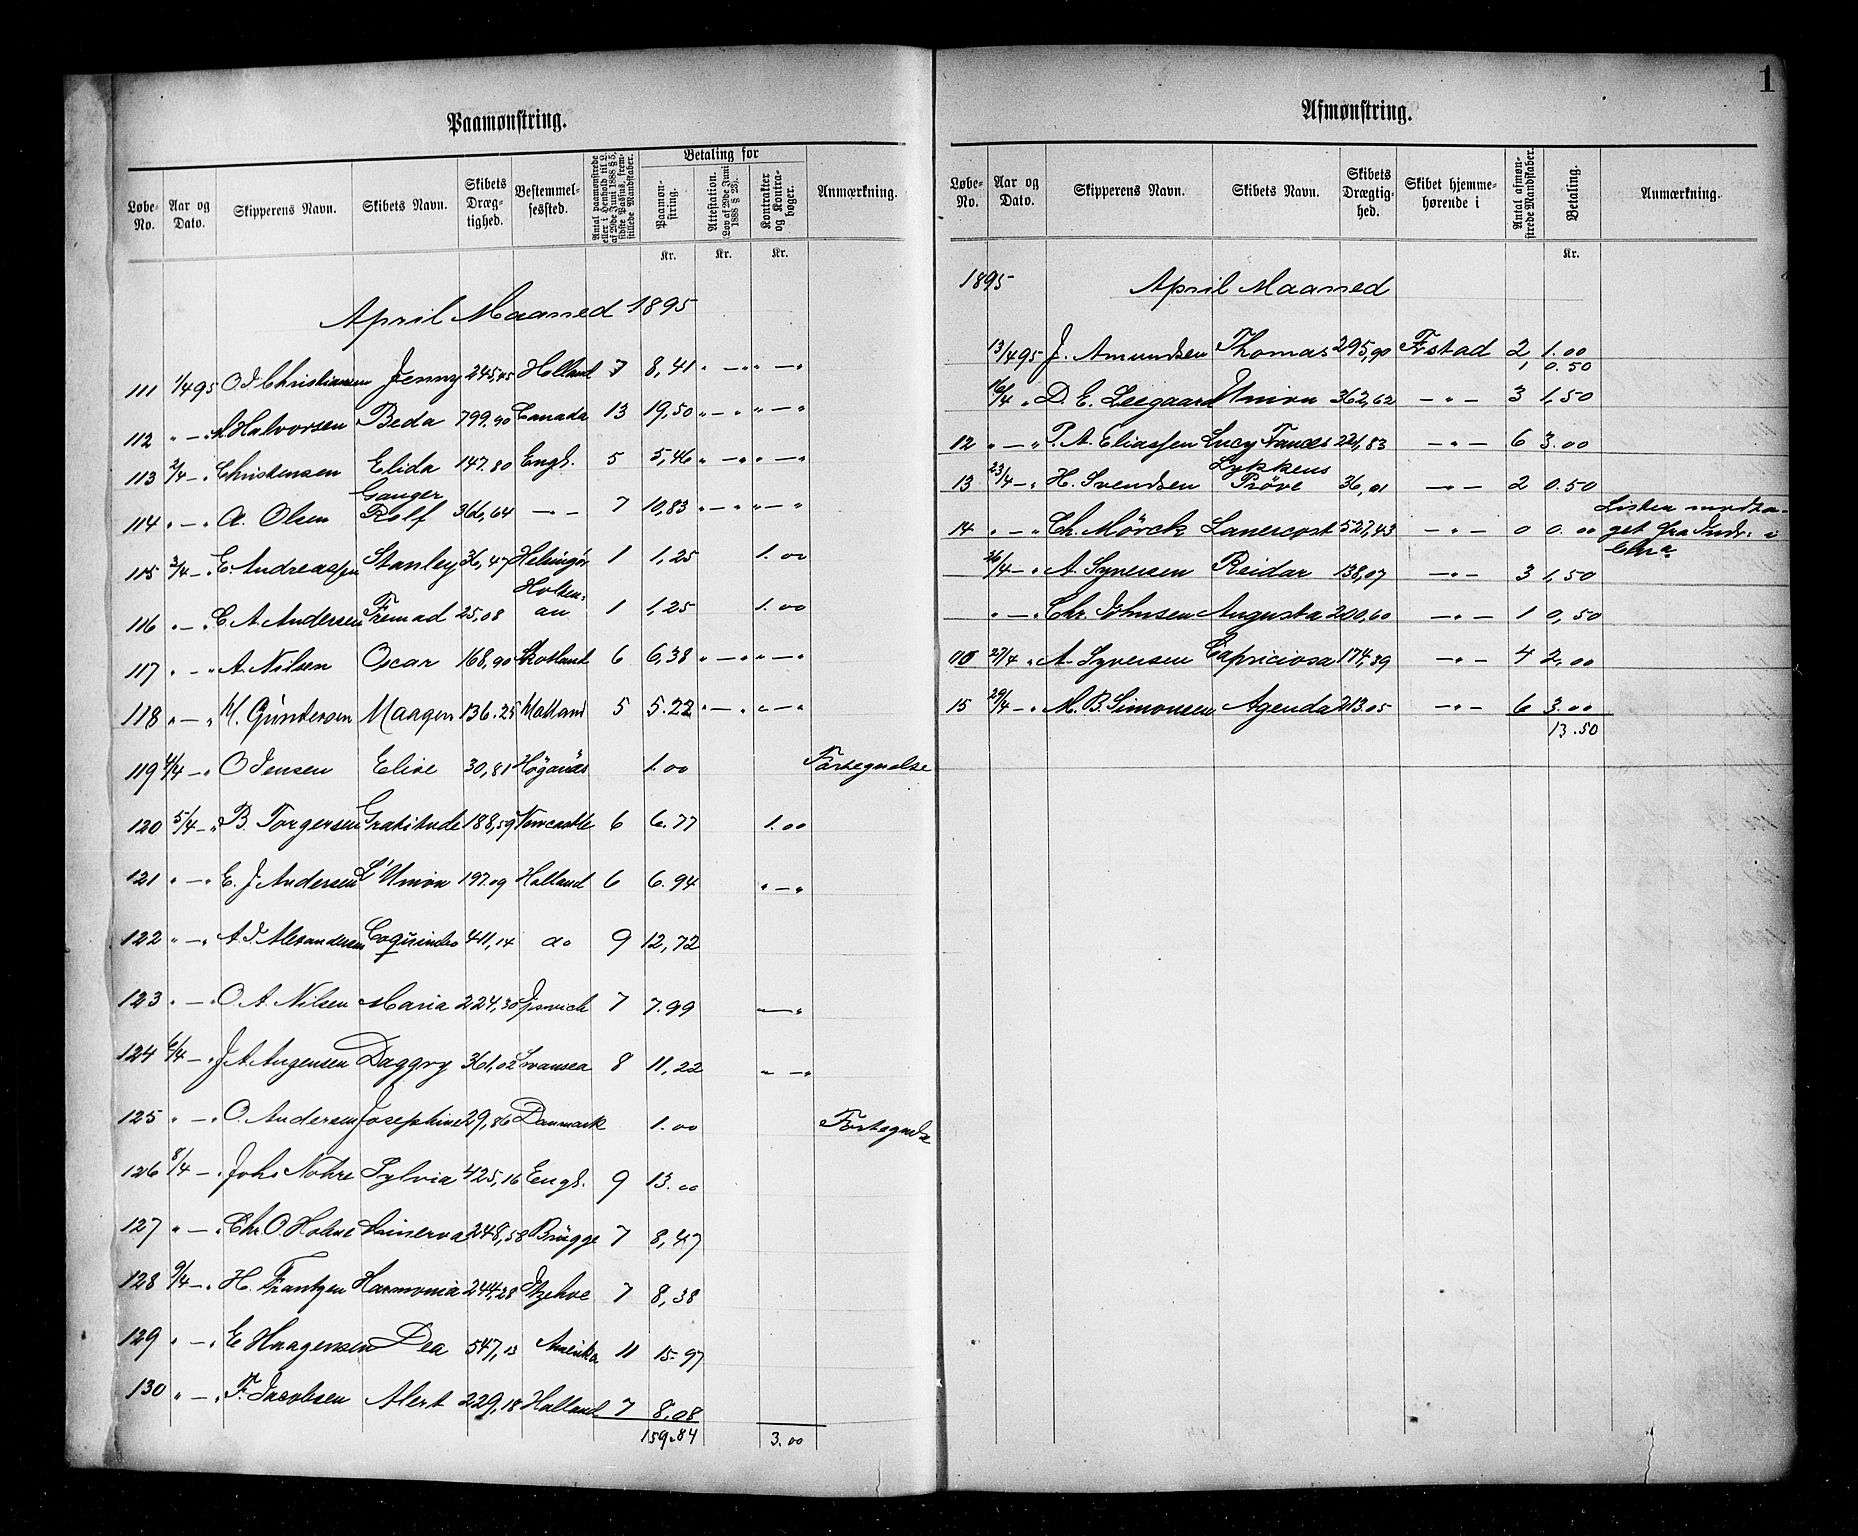 1
Paamønstring.
Løbe-No. Aar og Dato. Skipperens Navn. Skibets Navn. Skibets Drægtighed. Bestemmelsessted. Antal paamønstrede eller i Henhold til L. af 29de Juni 1888 § 5, sidste Passus, fremstillede Mandskaber. Betaling for Paamønstring. Attestation. (Lov af 29de Juni 1888 § 23). Kontrakter og Kontrabøger. Anmærkning.
Kr. Kr. Kr.
April Maaned 1895
111 1/4 95 O J Christiansen Jenny 245,45 Holland 7 8,41 " — " " — "
112 " — " Halvorsen Beda 799.90 Canada 13 19.50 " — " " — "
113 2/4 — " Christensen Elida 147.80 Engl. 5 5,46 " — " " — "
114 " — " A. Olsen Ganger Rolf 366,64 — " — 7 10,83 " — " " — "
115 3/4 — " E. Andreassen Stanley 36,47 Helsingør 1 1,25 1.00
116 " — " C. A. Andersen Fremad 25,08 Holtenau 1 1.25 1.00
117 " — " A. Nilsen Oscar 168,90 Skotland 6 6,38 " — " " — "
118 " — " M. Gundersen Maagen 136.25 Holland 5 5.22 " — " " — "
119 4/4 — " O Jensen Elise 30,81 Höganäs 1.00 Fortegnelse
120 5/4 — " B. Torgersen Gratitude 188,59 Newcastle 6 6.77 1.00
121 " — " E. J. Andersen L'Union 197.09 Holland 6 6.94 " — "
122 " — " A. J Alexandersen Coquimbo 411,14 do 9 12,72
123 " — " O. A. Nilsen Maria 224,30 Ipswich 7 7.99 " — "
124 6/4 — " J A Augensen Daggry 361,02 Swansea 8 11,22 " — "
125 " — " O. Andersen Josephine 29,86 Danmark 1.00 Fortegnelse
126 8/4 — " Johs Nohre Sylvia 425,16 Engl. 9 13.00
127 " — " Chr. O. Holme Minerva 248,58 Brügge 7 8,47
128 9/4 — " H. Frantzen Harmonia 244,28 Itzehoe 7 8,38
129 " — " E Haagensen Dea 547,13 Amerika 11 15.97
130 " — " F. Jacobsen Alert 229,18 Holland 7 8,08
159.84 3.00
Afmønstring.
Løbe-No. Aar og Dato. Skipperens Navn. Skibets Navn. Skibets Drægtighed. Skibet hjemmehørende i Antal afmønstrede Mandskaber. Betaling. Anmærkning.
Kr.
1895 April Maaned
13/4 95 J. Amundsen Thomas 295,90 Fstad 2 1.00
1 0.50
16/4 " D. E. Leegaard Union 362,62 — " — 3 1,50
12 " — " P. A. Eliassen Lucy Frances 221,83 — " — 6 3.00
13 23/4 — " H. Svendsen Lykkens Prøve 36,01 — " — 2 0.50
14 " — " Ch. Mörck Lanercost 527,43 — " — 0 0.00 Listen modtaget fra
26/4 — " A. Syversen Reidar 138,07 — " — 3 1,50
" — " Chr. Johnsen Augusta 200,60 — " — 1 0,50
27/4 " A. Syversen Capriciosa 174,39 — " — 4 2,00
15 29/4 — " M. B. Simonsen Agenda 213.05 — " — 6 3.00
13.50